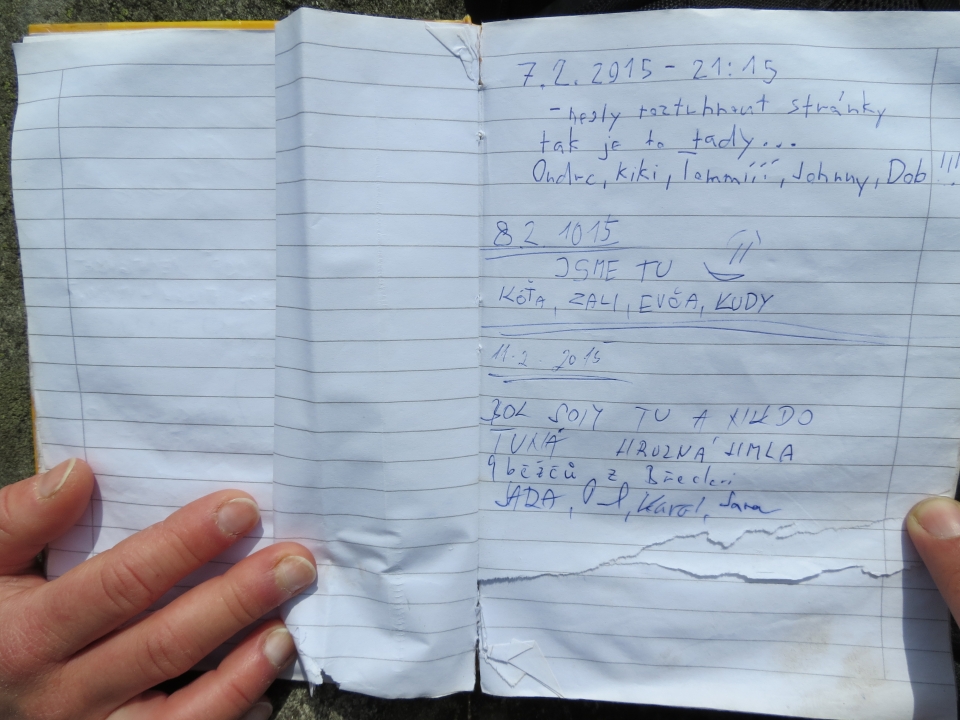 7.2.2015 - 21:15
- nešly roztrhnout stránky
tak je to tady...
Ondra, kiki, Tommííí, Johnny, Dob !!!
8.2 1015
JSME TU
KÓŤA, ZALI, EVČA, KUDY
11.2.2015
BOL SOM TU A NIKDO
TU HROZNÁ
z Břeclavi
JADA, Karel, Jana